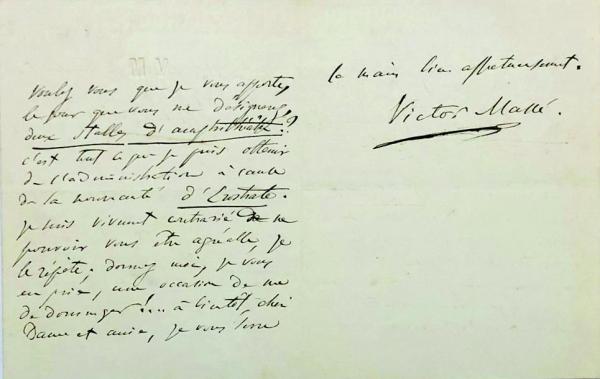 voulez vous que je vous apporte,
le jour que vous me désignerez,
deux Stalles d'amphithéâtre?
c'est tout ce que je puis obtenir
de l'administration à cause
de la nouveauté d'Erostrate.
je suis vivement contrarié de ne
pouvoir vous être agréable, je
le répète; donnez moi, je vous
en prie, une occasion de me
dédommager!... à bientôt, chère
Dame et amie, je vous serre
la main bien affectueusement.
Victor Massé.